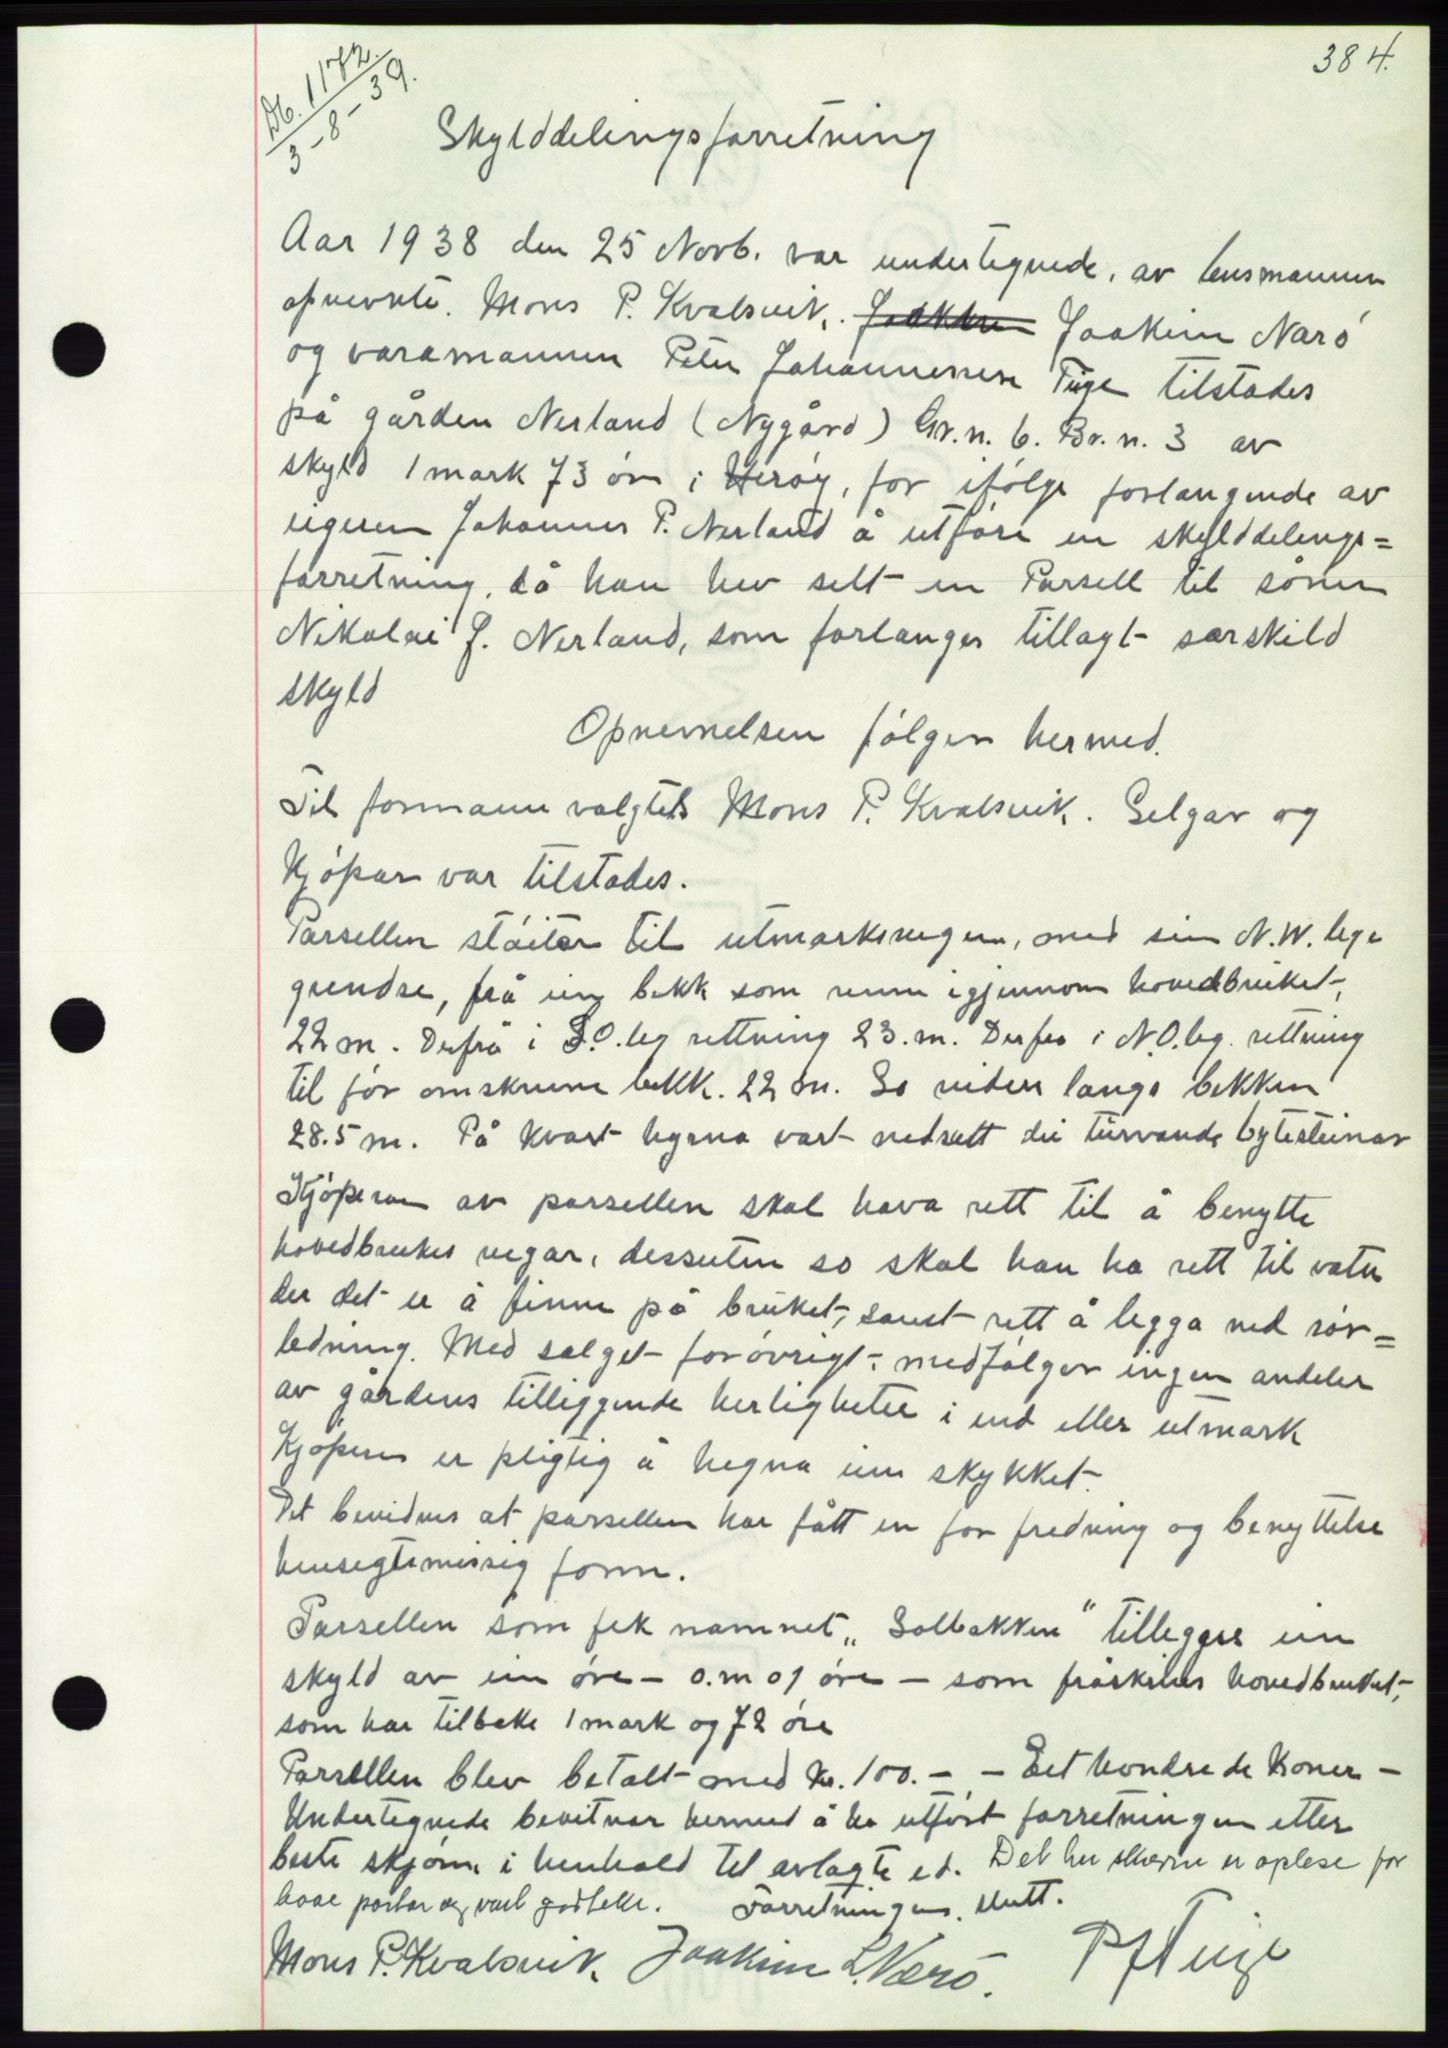 384.
Db. 1172.
3-8-39.
Skylddelingsforretning
Aar 1938 den 25 Novb. var undertegnede, av lensmannen
opnevnte. Mons P. Kvalsvik, Joakim Narö
og varamannen Peter Johannessen Tüge tilstades
på gården Nerland (Nygård) Gr.n. 6. Br.n. 3 av
skyld 1 mark 73 öre i Heröy, for ifölge forlangende av
eigeren Johannes P. Nerland å utföre en skylddelings=
forretning, då han hev selt en Parsell til sönen
Nikolai J. Nerland, som forlanges tillagt særskild
skyld
Opnevnelsen fölger hermed.
Til formann valgtes Mons P. Kvalsvik. Selgar og
Kjöpar var tilstades.
Parsellen stöiter til utmarksvegen, med sin N.W. lege
grendse, frå ein bekk som renn igjennom hovedbruket,
22 m. Derfrå i S.O. leg rettning 23. m. Derfra i N.O. leg. rettning
til för omskrevne bekk. 22 m. So videre langs bekken
28.5 m. På kvart hyrna vart nedsett dei turvande bytesteinar
Kjöperen av parsellen skal hava rett til å benytte
hovedbrukes vegar, dessuten so skal han ha rett til vatn
der det er å finne på bruket, samt rett å legga ned rör=
ledning. Med salget forövrigt medfölger ingen andeler
av gårdens tilliggende herligheter i ind eller utmark
Kjöperen er pligtig å hegna inn stykket.
Det bevidnes at parsellen har fått en for fredning og benyttelse
hensigtsmessig form.
Parsellen som fek namnet „Solbakken" tillegges ein
skyld av ein öre - 0.m 01 öre - som fråskiles hovedbruket,
som har tilbake 1 mark og 72 öre
Parsellen blev betalt med kr. 100.- - Eet hondrede Kroner -
Undertegnede bevitnar hermed å ha utfört forretningen etter
beste skjönn i henhold til avlagte ed. Det her skrevne er oplese for
baae partar og vart godteke. Forretningen slutt.
Mons P. Kvalsvik. Joakim L. Nærö. P J Tuge